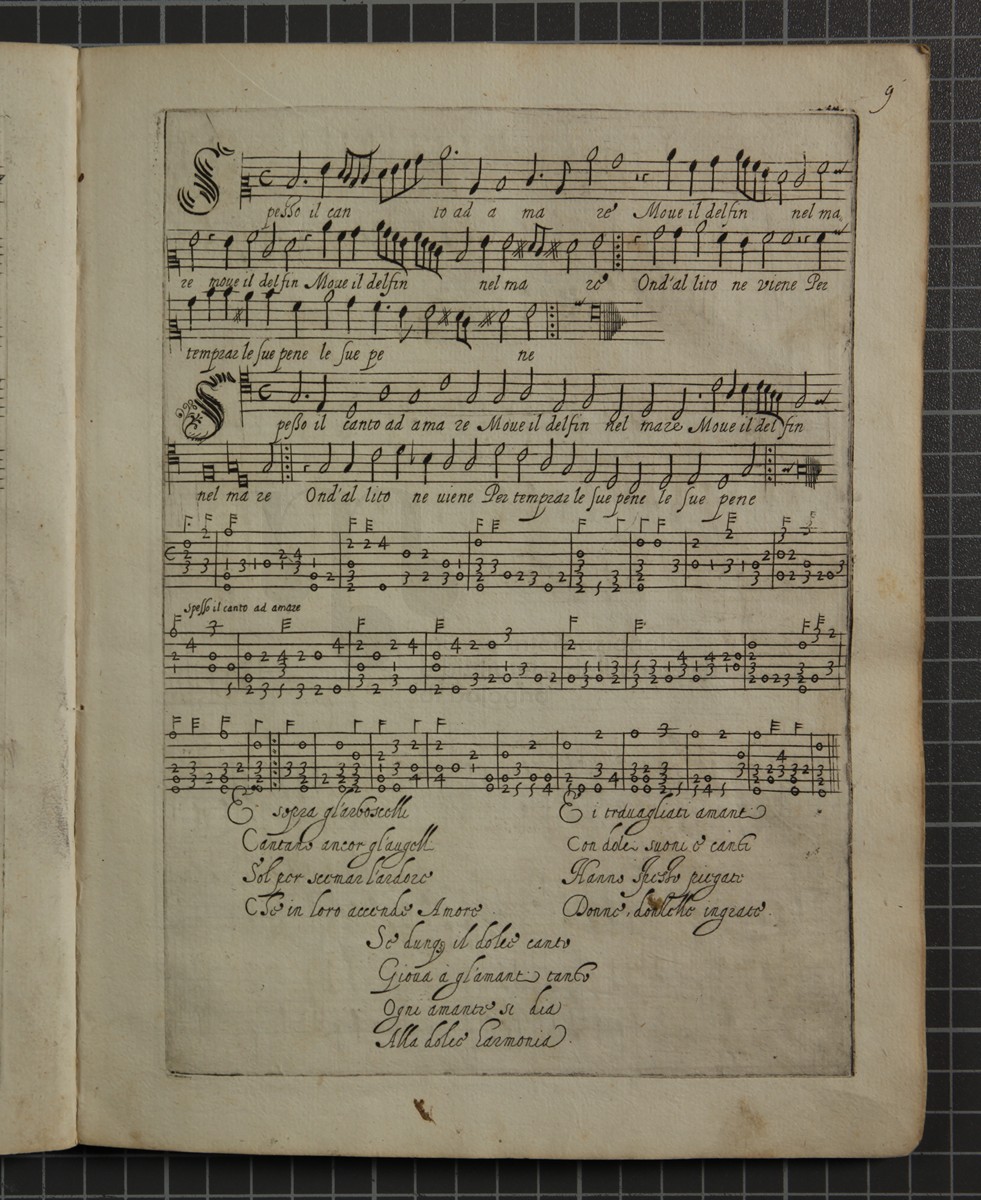 9
Spesso il can to ad a ma re Moue il delfin nel ma
re moue il delfin Moue il delfin nel ma re Ond'al lito ne viene Per
temprar le sue pene le sue pe ne
Spesso il canto ad ama re Moue il delfin nel mare Moue il del fin
nel ma re Ond'al lito ne uiene Per temprar le sue pene le sue pene
Spesso il canto ad amare
E sopra gl'arboscelli
Cantano ancor gl'augelli
Sol per scemar l'ardore
Che in loro accende Amore.
E i trauagliati amanti
Con dolci suoni e canti
Hanno spesso piegate
Donne, donzelle ingrate.
Se dunq il dolce canto
Gioua à gl'amanti tanto
Ogni amante si dia
Alla dolce harmonia.